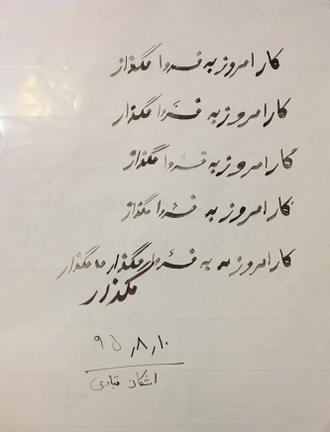 کار امروز به فردا مگذار
کار امروز به فردا مگذار
کار امروز به فردا مگذار
کار امروز به فردا مگذار
کار امروز به به فردا مگذار ما مگذار
مگذار
۹۵٫۸٫۱۰
اشکان قبادی